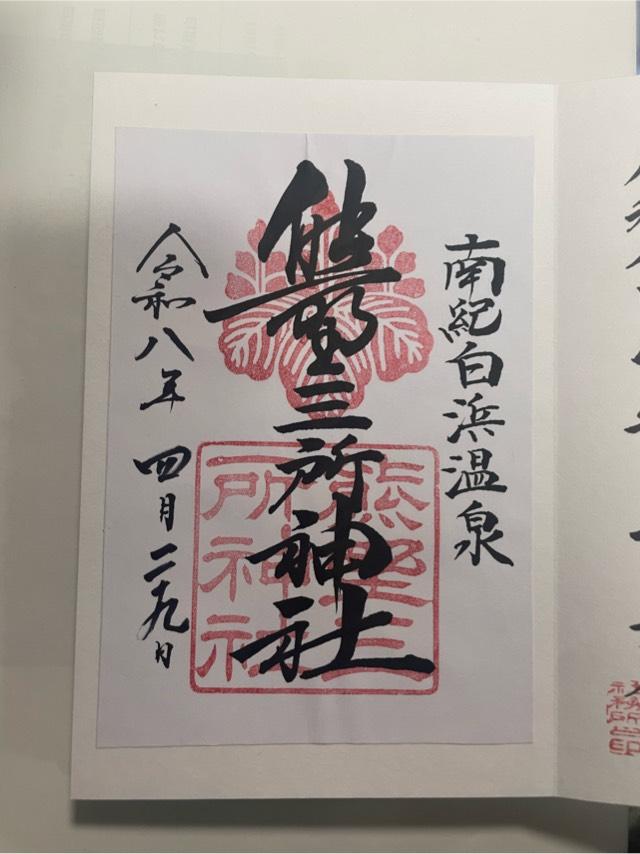 南紀白浜温泉
熊野三所神社
熊野三
所神社
令和八年 四月二十九日
社務所之印